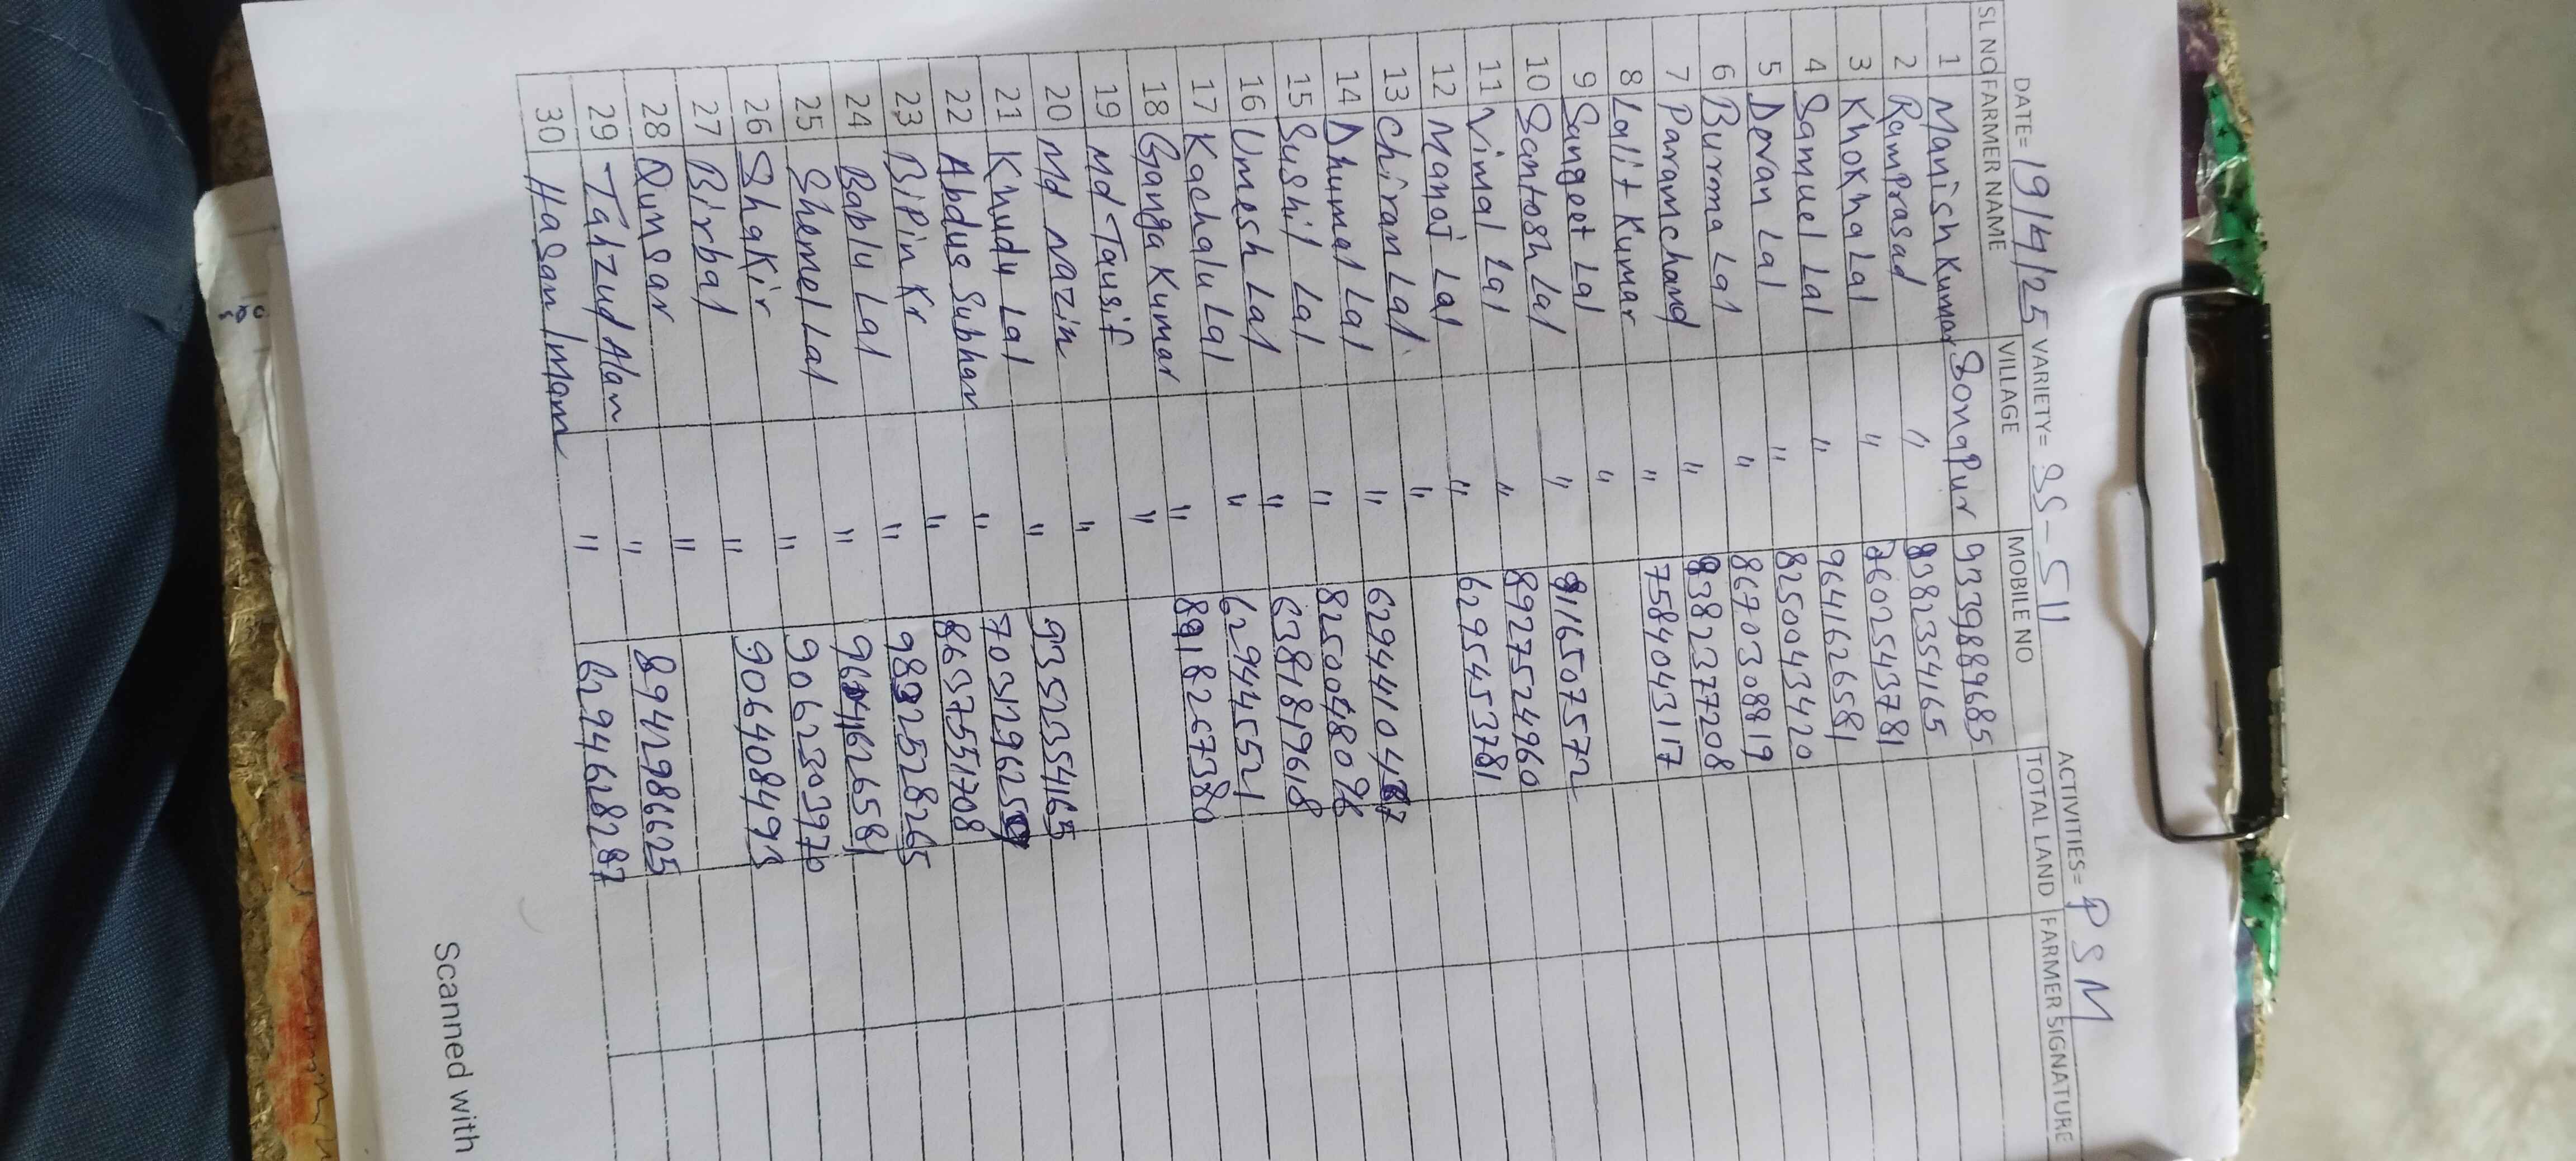 DATE= 19/4/25 VARIETY= SS-511 ACTIVITIES= PSM
SL NO FARMER NAME VILLAGE MOBILE NO TOTAL LAND FARMER SIGNATURE
1 Manish Kumar Sonapur 9339889685
2 RamPrasad " 8382354165
3 Khokha Lal " 7602543781
4 Samuel Lal " 9641626581
5 Devan Lal " 8250043420
6 Burma Lal " 8670308819
7 Paramchand " 8382377208
8 Lalit Kumar " 7584043117
9 Sangeet Lal "
10 Santosh Lal " 9116507572
11 Vimal Lal " 8927524960
12 Manoj Lal " 6295453781
13 Chiran Lal "
14 Dhumal Lal " 6294410487
15 Sushil Lal " 8250048096
16 Umesh Lal " 6381819618
17 Kachalu Lal " 6294445521
18 Ganga Kumar " 8918267380
19 Md Tausif "
20 Md Nazin "
21 Khudu Lal " 9352354165
22 Abdus Subhan "
23 BiPin Kr " 8637551708
24 Bablu Lal " 9832528265
25 Shemel Lal " 9641626581
26 Shakir " 9062303970
27 Birbal " 9064084993
28 Qumsar "
29 Tahzud Alan " 8942986625
30 Hasan Imam " 6294628287
Scanned with